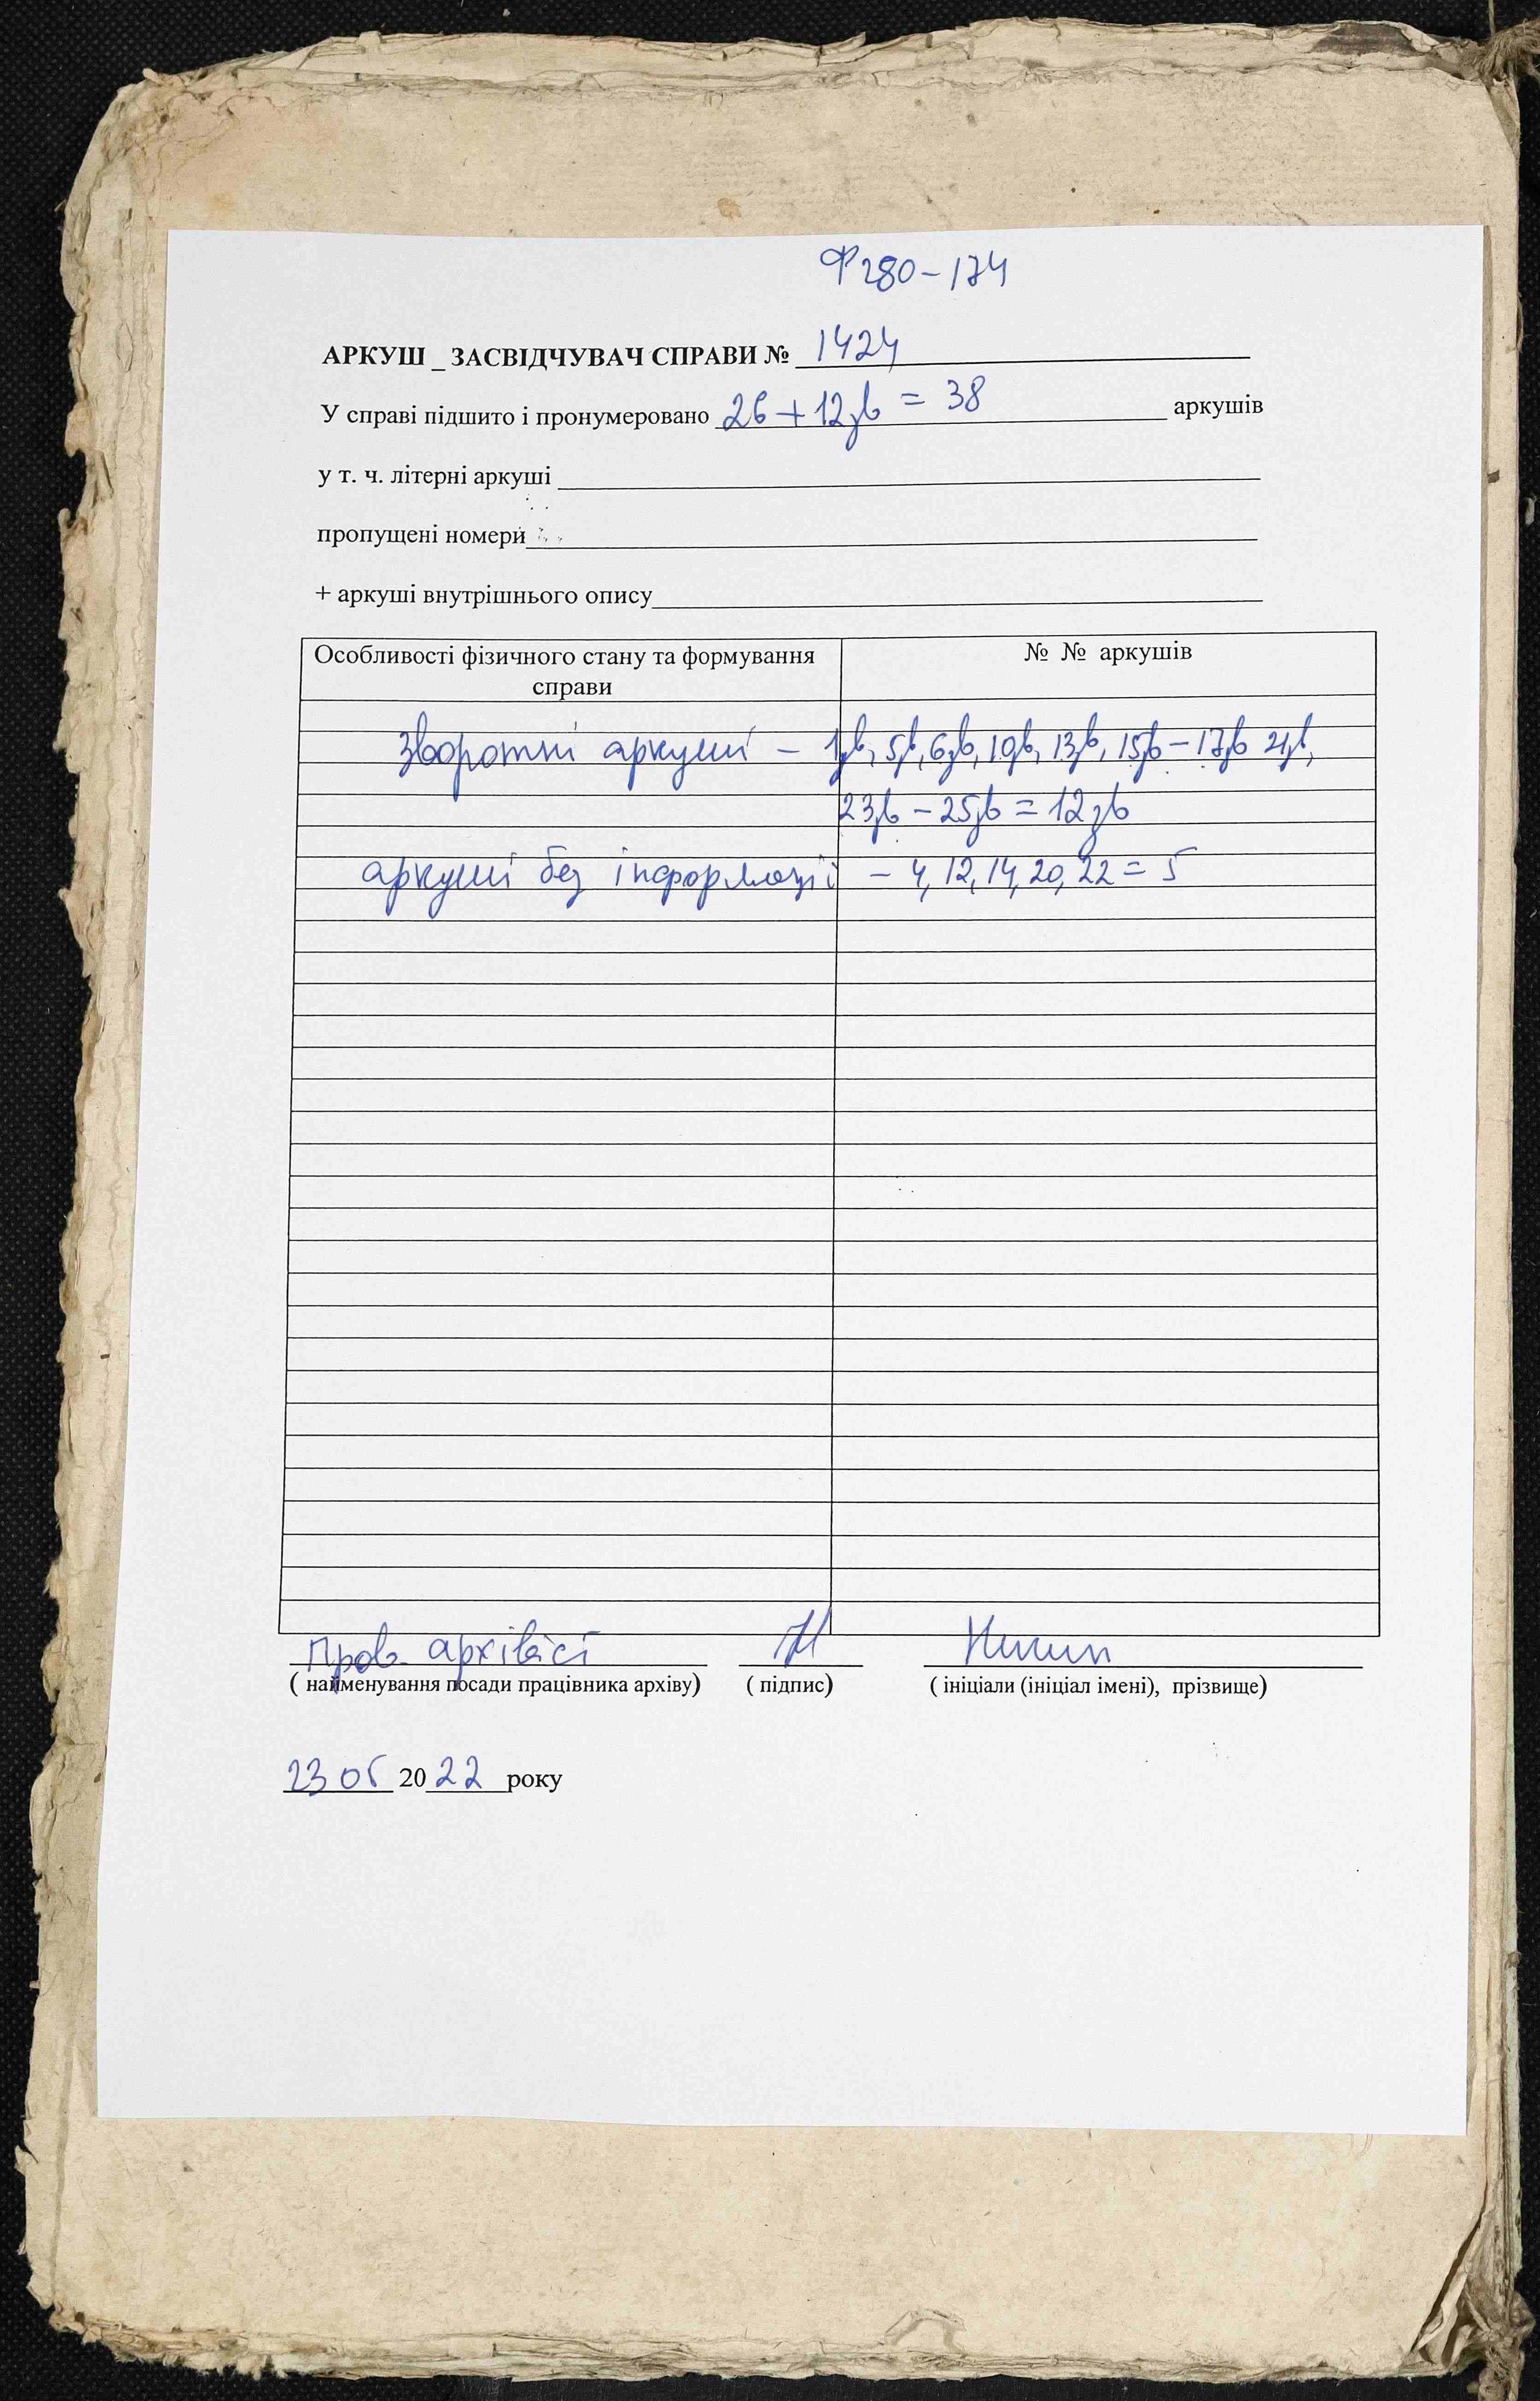 Ф 280-174
АРКУШ _ ЗАСВІДЧУВАЧ СПРАВИ № 1424
У справі підшито і пронумеровано 26+12зв = 38 аркушів
у т. ч. літерні аркуші
пропущені номери
+ аркуші внутрішнього опису
Особливості фізичного стану та формування справи № № аркушів
зворотні аркуші – 1зв, 5зв, 6зв, 10зв, 13зв, 15зв – 17зв 21зв,
23зв – 25зв = 12зв
аркуші без інформації – 4, 12, 14, 20, 22 = 5
пров. архівіст
( найменування посади працівника архіву) ( підпис) ( ініціали (ініціал імені), прізвище)
23 05 2022 року